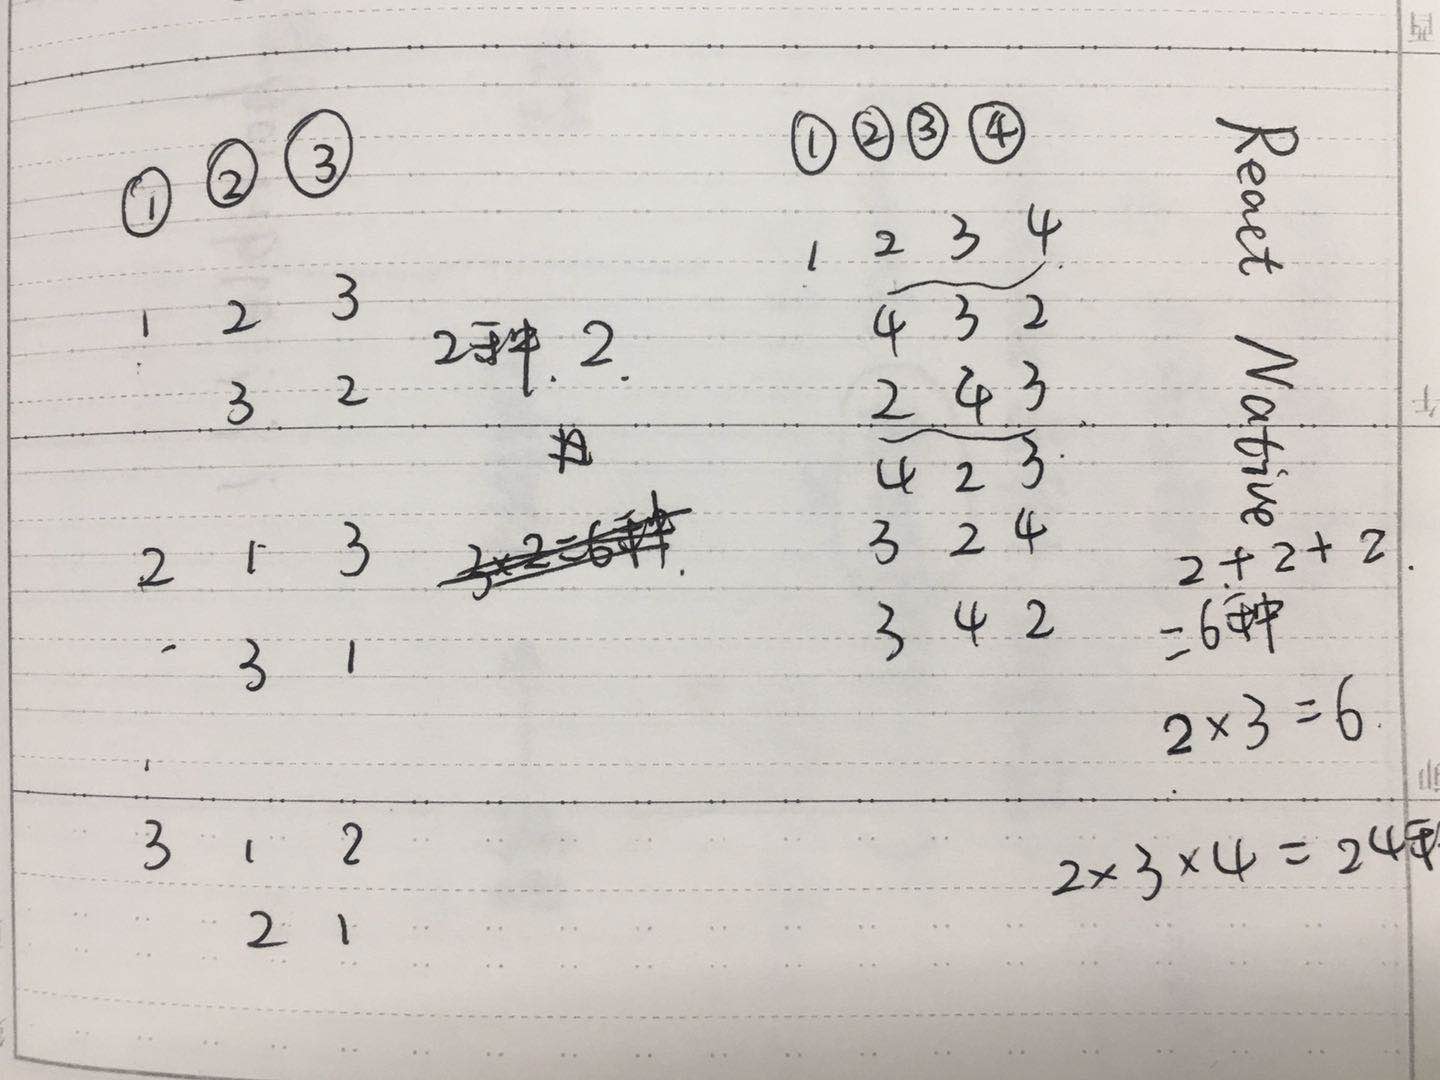 ① ② ③
1 2 3
3 2
2种. 2.
2 1 3
3 1
3×2=6种.
3 1 2
2 1
① ② ③ ④
1 2 3 4
4 3 2
2 4 3
4 2 3
3 2 4
3 4 2
React Native
2+2+2.
=6种
2×3=6.
2×3×4=24种